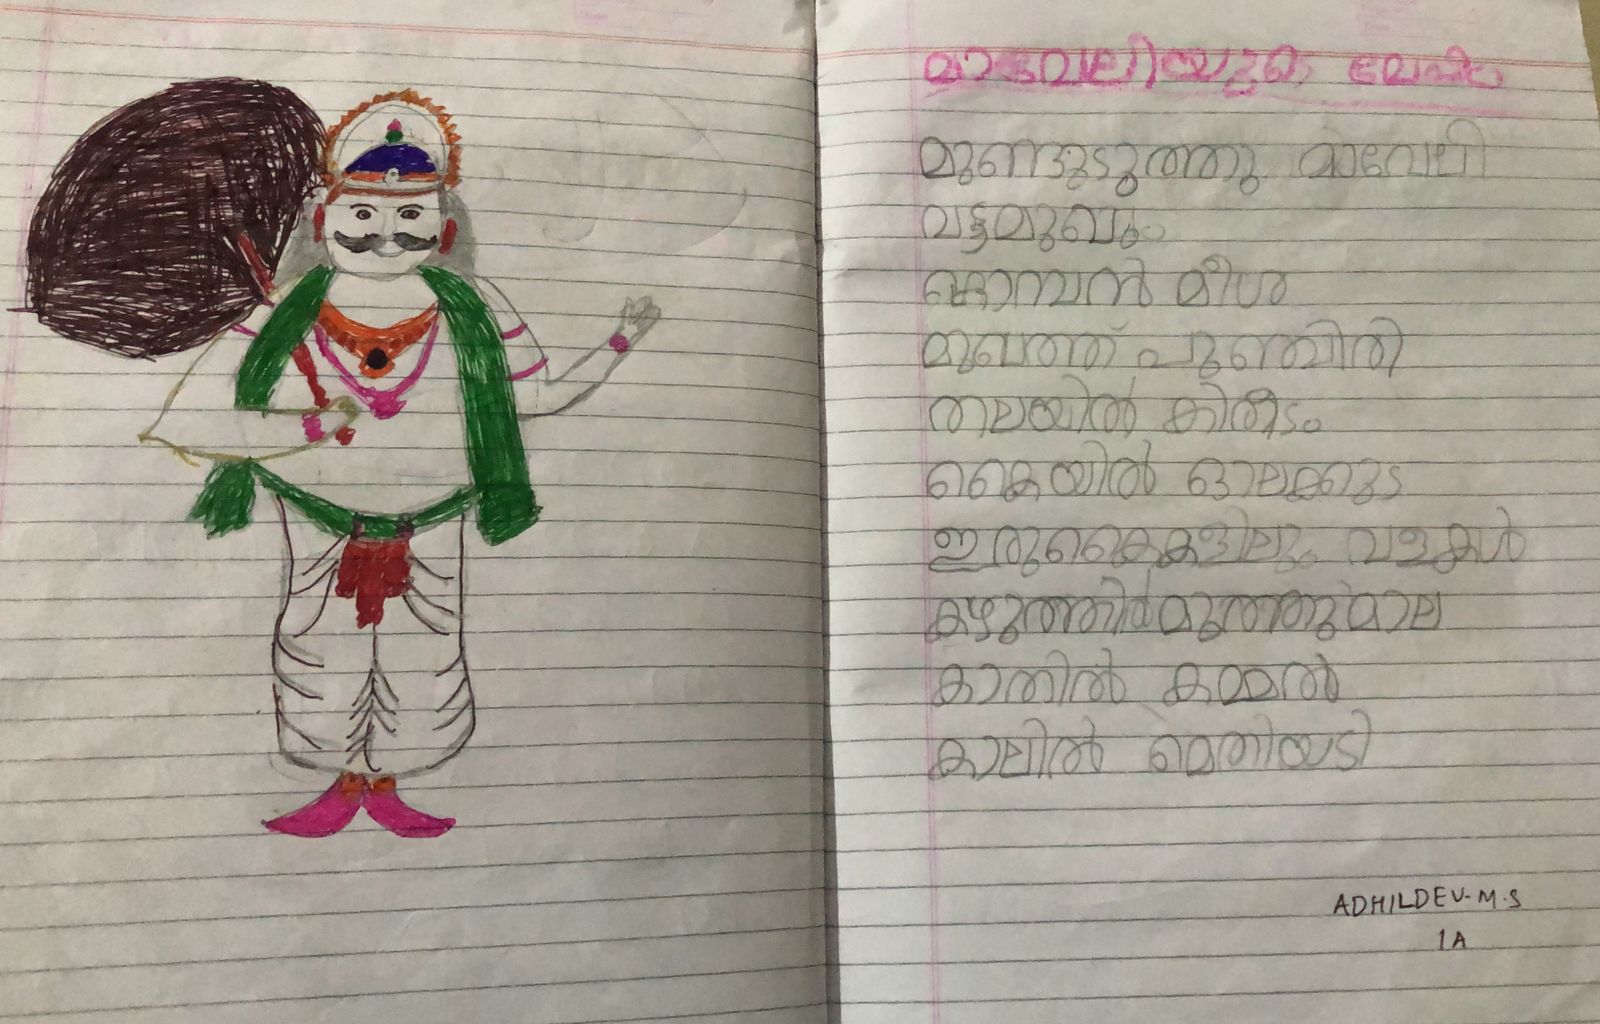 മാവേലിയുടെ വേഷം
മുണ്ടുടുത്തു മാവേലി
വട്ടമുഖം
കൊമ്പൻ മീശ
മുഖത്ത് പുഞ്ചിരി
തലയിൽ കിരീടം
കൈയിൽ ഓലക്കുട
ഇരുകൈകളിലും വളകൾ
കഴുത്തിൽ മുത്തുമാല
കാതിൽ കമ്മൽ
കാലിൽ മെതിയടി
ADHILDEV.M.S
1A